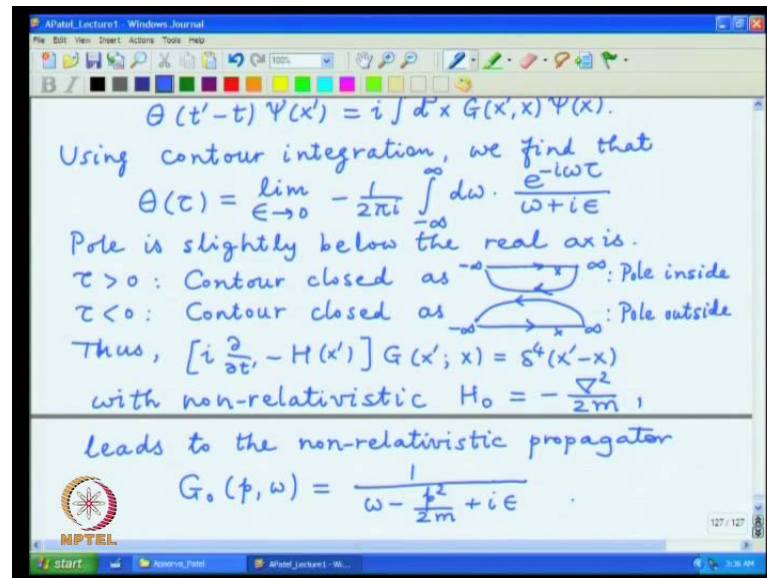 APatel_Lecture1 - Windows Journal
File Edit View Insert Actions Tools Help
100%
B I
Θ (t'-t) Ψ(x') = i ∫ d³x G(x',x) Ψ(x).
Using contour integration, we find that
Θ(τ) = lim_{ϵ→0} - 1/2πi ∫_{-∞}^{∞} dω. e^{-iωτ}/(ω+iϵ)
Pole is slightly below the real axis.
τ > 0 : Contour closed as -∞ x ∞ : Pole inside
τ < 0 : Contour closed as -∞ x ∞ : Pole outside
Thus, [i ∂/∂t' - H(x')] G(x'; x) = δ⁴(x'-x)
with non-relativistic H₀ = - ∇²/2m ,
leads to the non-relativistic propagator
G₀ (p, ω) = 1/(ω - p²/2m + iϵ) .
NPTEL
127 / 127
start
Apoorva_Patel
APatel_Lecture1 - Wi...
3:36 AM